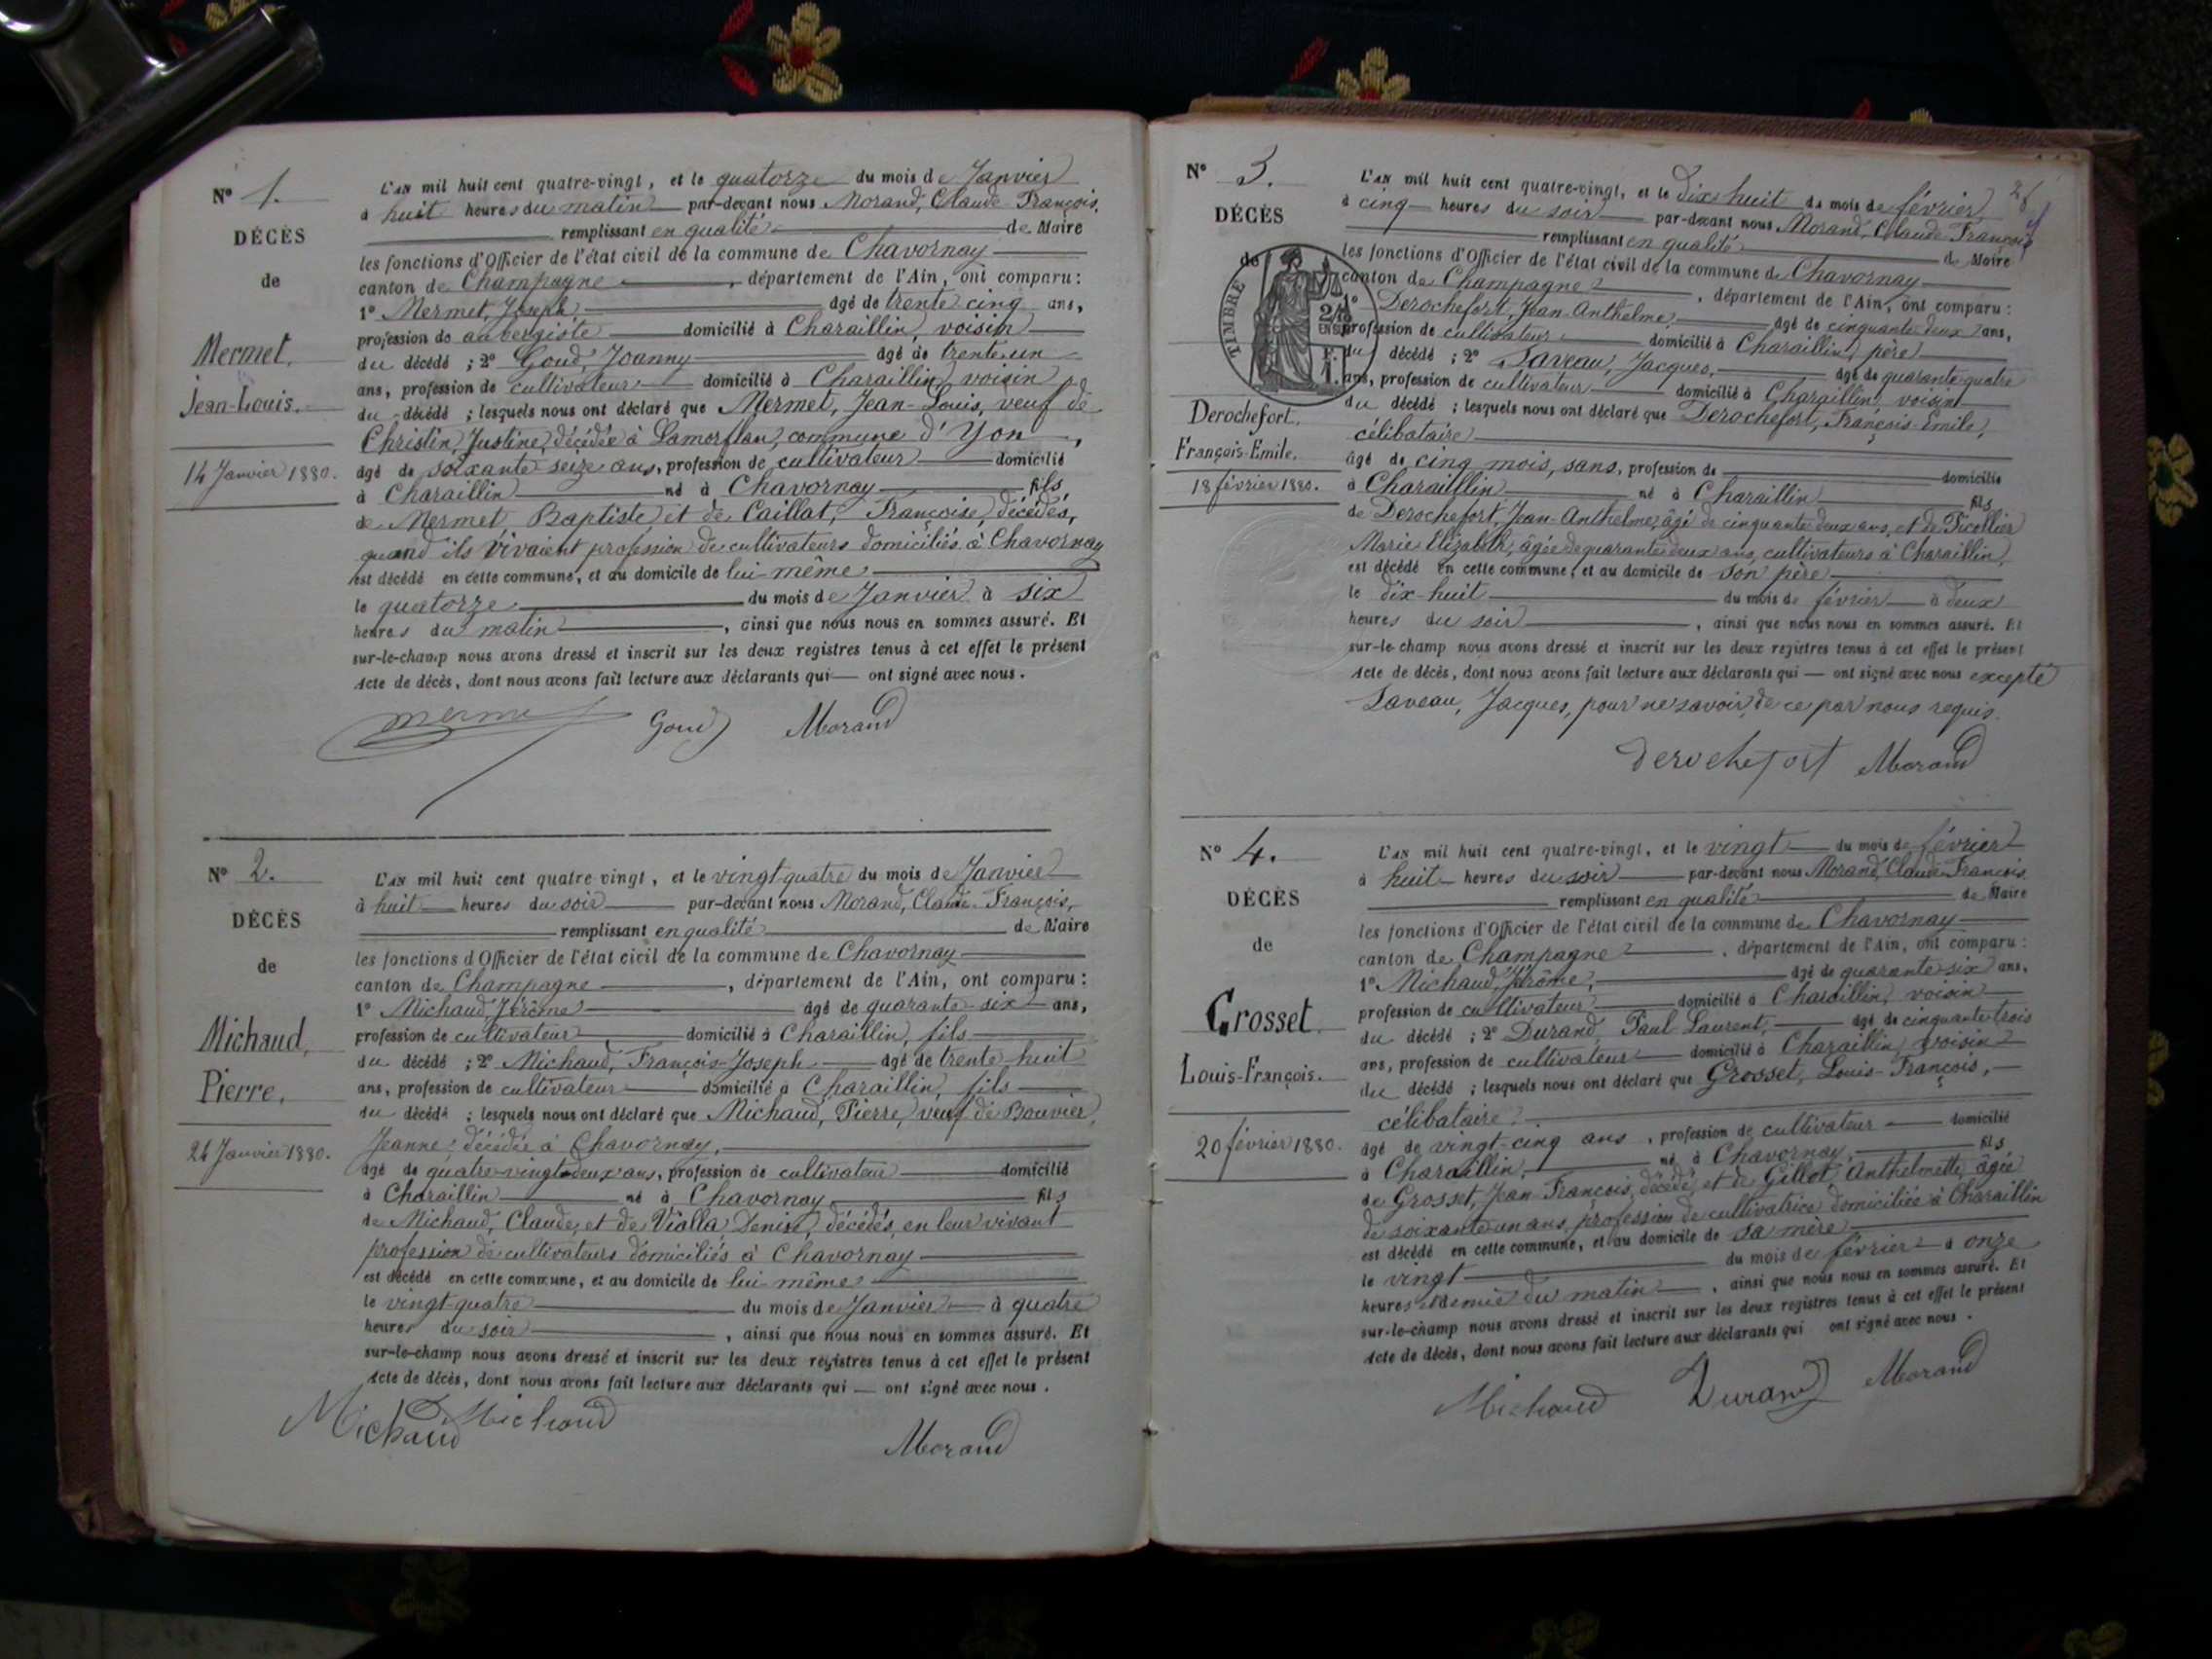 N° 1.
DÉCÈS
de
Mermet,
Jean-Louis.
14 Janvier 1880.
L'AN mil huit cent quatre-vingt, et le quatorze du mois de Janvier
à huit heures du matin par-devant nous Morand, Claude-François,
remplissant en qualité de Maire
les fonctions d'Officier de l'état civil de la commune de Chavornay
canton de Champagne, département de l'Ain, ont comparu :
1° Mermet, Joseph âgé de trente cinq ans,
profession de aubergiste domicilié à Charaillin, voisin
du décédé ; 2° Goud, Joanny âgé de trente un
ans, profession de cultivateur domicilié à Charaillin, voisin
du décédé ; lesquels nous ont déclaré que Mermet, Jean-Louis, veuf de
Christin, Justine, décédée à commune d'Yon,
âgé de soixante seize ans, profession de cultivateur domicilié
à Charaillin né à Chavornay fils
de Mermet, Baptiste, et de Caillat, Françoise, décédés,
quand ils vivaient profession de cultivateurs domiciliés à Chavornay
est décédé en cette commune, et au domicile de lui-même
le quatorze du mois de Janvier à six
heures du matin, ainsi que nous nous en sommes assuré. Et
sur-le-champ nous avons dressé et inscrit sur les deux registres tenus à cet effet le présent
Acte de décès, dont nous avons fait lecture aux déclarants qui — ont signé avec nous.
Mermet Goud Morand
N° 2.
DÉCÈS
de
Michaud,
Pierre.
24 Janvier 1880.
L'AN mil huit cent quatre-vingt, et le vingt quatre du mois de Janvier
à huit heures du soir par-devant nous Morand, Claude-François,
remplissant en qualité de Maire
les fonctions d'Officier de l'état civil de la commune de Chavornay
canton de Champagne, département de l'Ain, ont comparu :
1° Michaud, Jérôme âgé de quarante-six ans,
profession de cultivateur domicilié à Charaillin, fils
du décédé ; 2° Michaud, François-Joseph âgé de trente huit
ans, profession de cultivateur domicilié à Charaillin, fils
du décédé ; lesquels nous ont déclaré que Michaud, Pierre, veuf de Bouvier,
Jeanne, décédée à Chavornay,
âgé de quatre-vingt-deux ans, profession de cultivateur domicilié
à Charaillin né à Chavornay fils
de Michaud, Claude, et de Vialla, Denise, décédés, en leur vivant
profession de cultivateurs domiciliés à Chavornay
est décédé en cette commune, et au domicile de lui-même
le vingt-quatre du mois de Janvier à quatre
heures du soir, ainsi que nous nous en sommes assuré. Et
sur-le-champ nous avons dressé et inscrit sur les deux registres tenus à cet effet le présent
Acte de décès, dont nous avons fait lecture aux déclarants qui — ont signé avec nous.
Michaud Michaud
Morand
N° 3.
DÉCÈS
de
TIMBRE
Derochefort.
François-Emile.
18 février 1880.
L'AN mil huit cent quatre-vingt, et le dix huit du mois de février
à cinq heures du soir par-devant nous Morand, Claude François
remplissant en qualité de Maire
les fonctions d'Officier de l'état civil de la commune de Chavornay
canton de Champagne, département de l'Ain, ont comparu :
1° Derochefort, Jean-Anthelme, âgé de cinquante deux ans,
profession de cultivateur domicilié à Charaillin, père
du décédé ; 2° Laveau, Jacques, âgé de quarante-quatre
ans, profession de cultivateur domicilié à Charaillin, voisin
du décédé ; lesquels nous ont déclaré que Derochefort, François-Emile,
célibataire
âgé de cinq mois, sans, profession de domicilié
à Charaillin né à Charaillin fils
de Derochefort, Jean-Anthelme, âgé de cinquante deux ans, et de Ficollier
Marie Elizabeth, âgée de quarante deux ans, cultivateurs à Charaillin,
est décédé en cette commune, et au domicile de son père
le dix-huit du mois de février à deux
heures du soir, ainsi que nous nous en sommes assuré. Et
sur-le-champ nous avons dressé et inscrit sur les deux registres tenus à cet effet le présent
Acte de décès, dont nous avons fait lecture aux déclarants qui — ont signé avec nous excepté
Laveau, Jacques, pour ne savoir, de ce par nous requis.
derochefort Morand
N° 4.
DÉCÈS
de
Grosset
Louis-François.
20 février 1880.
L'AN mil huit cent quatre-vingt, et le vingt du mois de février
à huit heures du soir par-devant nous Morand, Claude-François,
remplissant en qualité de Maire
les fonctions d'Officier de l'état civil de la commune de Chavornay
canton de Champagne, département de l'Ain, ont comparu :
1° Michaud, Jérôme, âgé de quarante six ans,
profession de cultivateur domicilié à Charaillin, voisin
du décédé ; 2° Durand, Paul Laurent, âgé de cinquante trois
ans, profession de cultivateur domicilié à Charaillin, voisin
du décédé ; lesquels nous ont déclaré que Grosset, Louis-François,
célibataire
âgé de vingt-cinq ans, profession de cultivateur domicilié
à Charaillin, né à Chavornay, fils
de Grosset, Jean-François, décédé, et de Gillot, Anthelmette, âgée
de soixante un ans, profession de cultivatrice domiciliée à Charaillin
est décédé en cette commune, et au domicile de sa mère
le vingt du mois de février à onze
heures et demie du matin, ainsi que nous nous en sommes assuré. Et
sur-le-champ nous avons dressé et inscrit sur les deux registres tenus à cet effet le présent
Acte de décès, dont nous avons fait lecture aux déclarants qui ont signé avec nous.
Michaud Durand Morand